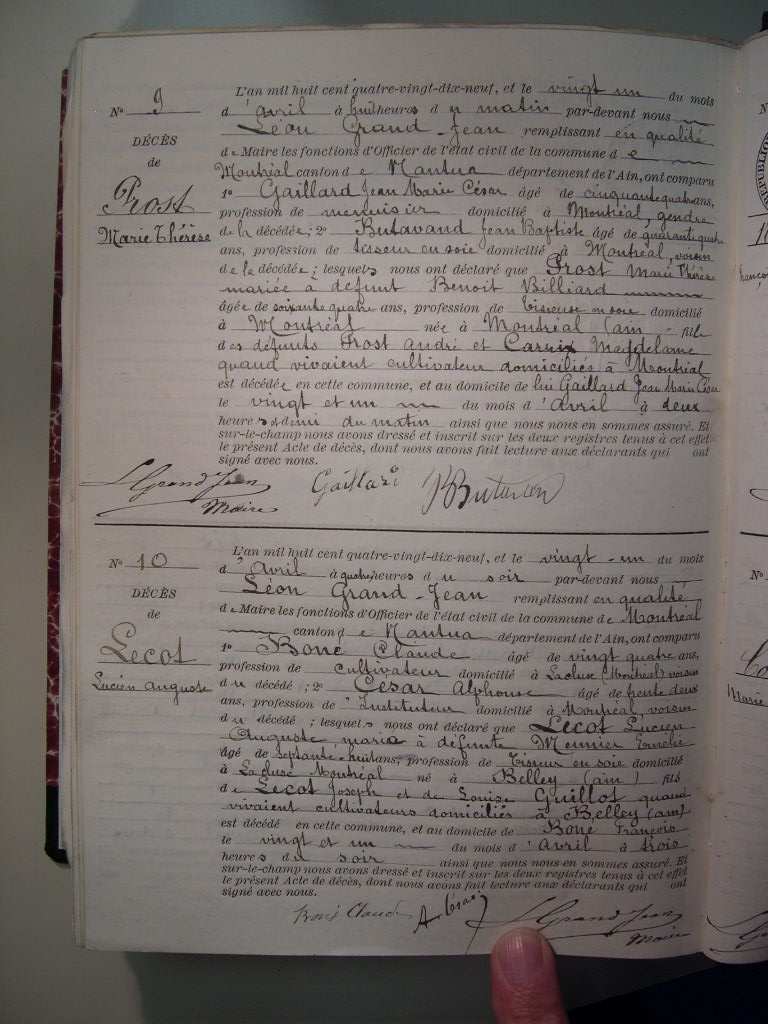 L'an mil huit cent quatre-vingt-dix-neuf, et le vingt un du mois
N° 9
d'avril à huit heures du matin par-devant nous
Léon Grand-Jean remplissant en qualité
DÉCÈS
de Maire les fonctions d'Officier de l'état civil de la commune de
de
Montréal canton de Nantua département de l'Ain, ont comparu
Prost
1° Gaillard Jean Marie César âgé de cinquante quatre ans,
profession de menuisier domicilié à Montréal, gendre
Marie Thérèse
de la décédée; 2° Butavand Jean Baptiste âgé de quarante quatre
ans, profession de tisseur en soie domicilié à Montréal, voisin
de la décédée; lesquels nous ont déclaré que Prost Marie Thérèse
mariée à défunt Benoit Billiard
âgée de soixante quatre ans, profession de Tisseuse en soie domicilié
à Montréal née à Montréal (ain fille
des défunts Prost andré et Magdelaine
quand vivaient cultivateur domiciliés à Montréal
est décédée en cette commune, et au domicile de lui Gaillard Jean Marie César
le vingt et un du mois d'avril à deux
heures et demi du matin ainsi que nous nous en sommes assuré. Et
sur-le-champ nous avons dressé et inscrit sur les deux registres tenus à cet effet
le présent Acte de décès, dont nous avons fait lecture aux déclarants qui ont
signé avec nous.
L Grand Jean Gaillard
Maire
L'an mil huit cent quatre-vingt-dix-neuf, et le vingt-un du mois
N° 10
d'avril à quatre heures du soir par-devant nous
Léon Grand-Jean remplissant en qualité
DÉCÈS
de Maire les fonctions d'Officier de l'état civil de la commune de Montréal
de
canton de Nantua département de l'Ain, ont comparu
Lecot
1° Bone Claude âgé de vingt quatre ans,
profession de cultivateur domicilié à Lacluse (Montréal) voisin
Lucien auguste
du décédé; 2° César Alphonse âgé de trente deux
ans, profession de Instituteur domicilié à Montréal, voisin
du décédé; lesquels nous ont déclaré que Lecot Lucien
Auguste marié à défunte Meunier
âgé de septante huit ans, profession de Tisseur en soie domicilié
à Lacluse Montréal né à Belley (ain) fils
de Lecot Joseph et de Louise Guillot quand
vivaient cultivateurs domiciliés à Belley (ain)
est décédé en cette commune, et au domicile de Bone François
le vingt et un du mois d'avril à trois
heures du soir ainsi que nous nous en sommes assuré. Et
sur-le-champ nous avons dressé et inscrit sur les deux registres tenus à cet effet
le présent Acte de décès, dont nous avons fait lecture aux déclarants qui ont
signé avec nous.
Bone Claude A César L Grand Jean
Maire